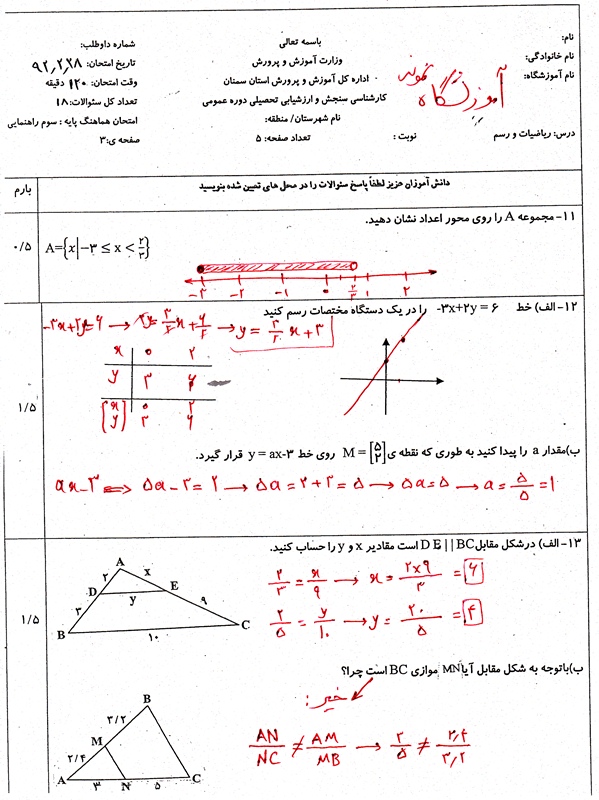 باسمه تعالی
نام:
نام خانوادگی:
نام آموزشگاه:
آموزشگاه نمونه
درس: ریاضیات و رسم
نوبت :
وزارت آموزش و پرورش
اداره کل آموزش و پرورش استان سمنان
کارشناسی سنجش و ارزشیابی تحصیلی دوره عمومی
نام شهرستان/ منطقه:
تعداد صفحه: ۵
شماره داوطلب:
تاریخ امتحان: ۹۲٫۲٫۲۸
وقت امتحان: ۱۲۰ دقیقه
تعداد کل سئوالات: ۱۸
امتحان هماهنگ پایه : سوم راهنمایی
صفحه ی: ۳
دانش آموزان عزیز لطفاً پاسخ سئوالات را در محل های تعیین شده بنویسید
بارم
۱۱- مجموعه A را روی محور اعداد نشان دهید.
۰/۵
A={x|−۳ ≤ x < ۲/۳}
−۳ −۲ −۱ ۰ ۲/۳ ۱ ۲
۱۲- الف) خط -۳x+۲y = ۶ را در یک دستگاه مختصات رسم کنید
-۳x+۲y=۶ → ۲y/۲ = ۳/۲ x + ۶/۲ → y = ۳/۲ x + ۳
x ۰ ۲
y ۳ ۶
[x y] ۰ ۳ ۲ ۶
۱/۵
ب)مقدار a را پیدا کنید به طوری که نقطه ی M = [۵ ۲] روی خط y = ax-۳ قرار گیرد.
ax-۳ ⟹ ۵a-۳=۲ → ۵a=۲+۳=۵ → ۵a=۵ → a=۵/۵=۱
۱۳- الف) درشکل مقابل DE||BC است مقادیر x و y را حساب کنید.
A ۲ x D E y ۳ ۹ B ۱۰ C
۲/۳ = x/۹ → x = ۲×۹/۳ = ۶
۱/۵
۲/۵ = y/۱۰ → y = ۲۰/۵ = ۴
ب)باتوجه به شکل مقابل آیا MN موازی BC است چرا؟
خیر:
B ۳/۲ M ۲/۴ A ۳ N ۵ C
AN/NC ≠ AM/MB → ۳/۵ ≠ ۲٫۴/۳٫۲